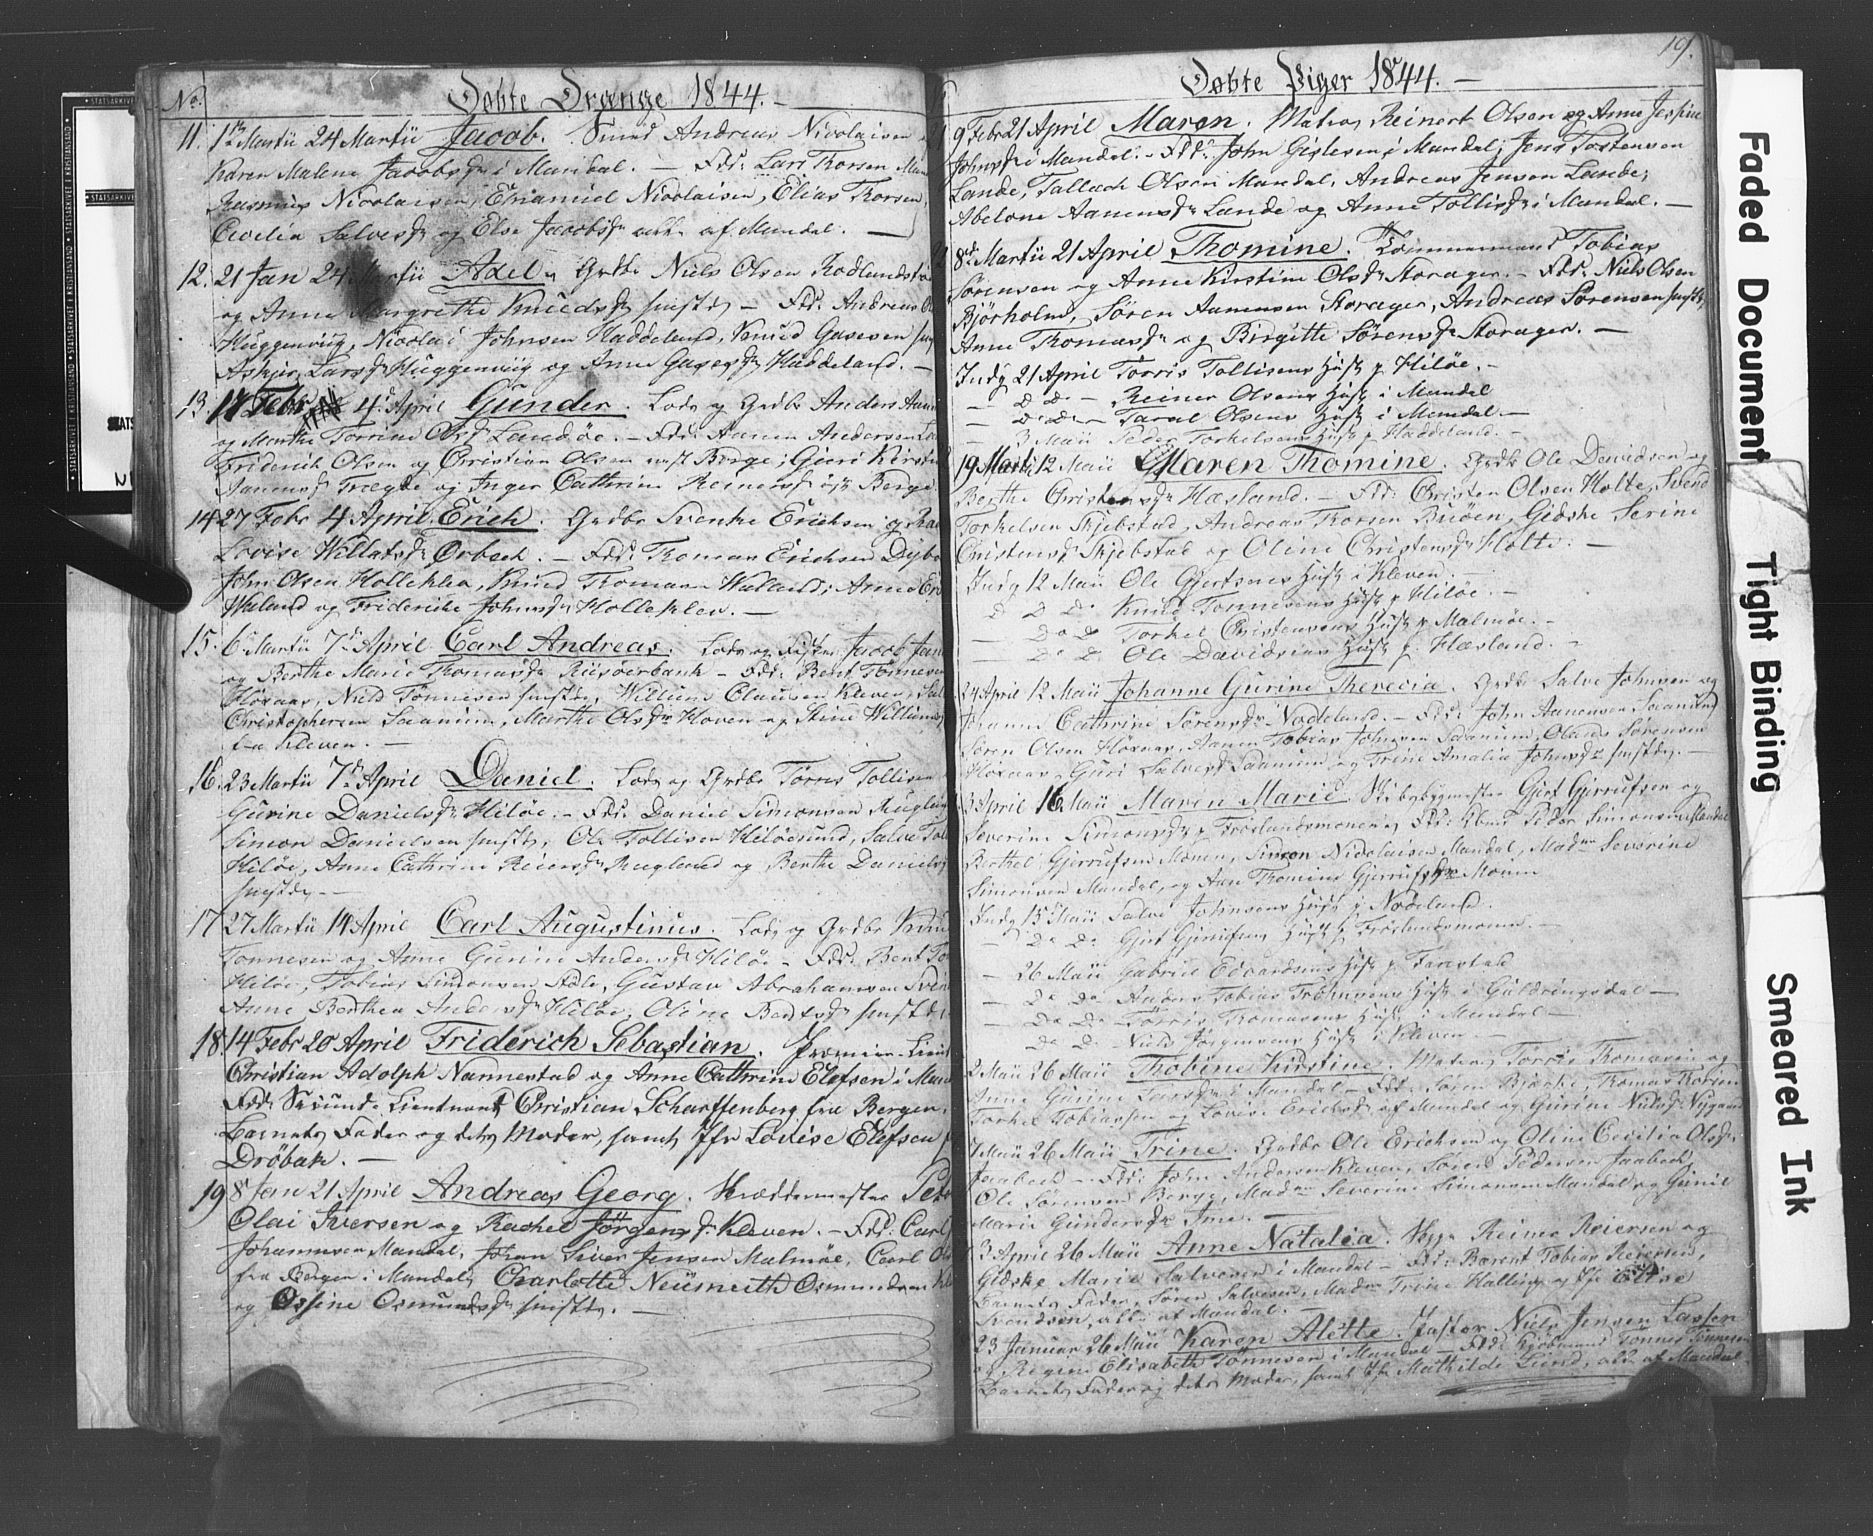 No. Døbte Drenge 1844.
11. 1ste Martii 24 Martii Jacob. Smed Andreas Nicolaisen
Karen Malene Jacobsdr i Mandal. — Fdr: Lars Thorsen
Rasmus Nicolaisen, Emanuel Nicolaisen, Elias Thorsen,
Cecilia Salvesdr og Else Jacobsdr alle af Mandal. —
12. 21 Jan 24 Martii Adel. Grdbr Niels Olsen
og Anne Margrethe Knudsdr smstds — Fdr: Andreas
Huggenviig, Nicolai Johnsen Haddeland, Knud Gasesen
Larsdr Huggenviig og Anne Gasesdr Haddeland. —
13. 17 Febr 4de April Gunder. Lods og Grdbr Anders
og Marthe Torine Olsdr Landøe. — Fdr: Aanen Andersen
Friderich Olsen og Christian Olsen Berge; Guri Kirst
Aanensdr Tregde og Inger Cathrine Reiersdr Berge.
14 27 Febr 4 April Erich. Grdbr Svenke Erichsen og
Lovise Willatsdr Orbech. — Fdr: Thomas Erichsen
John Olsen Holleklev, Knud Thomasen Valand; Anne
Valand og Friderike Johnsdr Holleklev. —
15. 6te Martii 7de April Carl Andreas. Lods og Fisker Jacob
og Berthe Marie Thomasdr Riisøerbank — Fdr: Bent Tønnesen
Høxaas, Niels Tønnesen smstds, Willum Clausen Kleven,
Christophersen Saanum, Marthe Olsdr Hoven og Stine Willumsdr
fra Kleven. —
16. 23 Martii 7de April Daniel. Lods og Grdbr Tørris Tollisen
Gurine Danielsdr Hiløe. — Fdr: Daniel Simonsen
Simon Danielsen smstds, Ole Tollisen Hiløesund, Salve
Hiløe, Anne Cathrine Reiersdr Ruglend og Berthe Daniels
smstds. —
17 27 Martii 14 April Carl Augustinus. Lods og Grdbr Knud
Tønnesen og Anne Gurine Andersdr Hiløe — Fdr: Bent
Hiløe, Tobias Simonsen, Gustav Abrahamsen
Anne Berthea Andersdr Hiløe, Oline Bentsdr smstds.
18. 14 Febr 20 April Friderich Sebastian. Premier-Lieut
Christian Adolph Nannestad og Anne Cathrine Elefsen i
Fdr: Second-Lieutnant Christian Scharffenberg fra Bergen,
Barnets Fader og dets Moder, samt Jfr Lovise Elefsen
Drøbak. —
19 8 Jan 21 April Andreas Georg. Skræddermester Peder
Olai Iversen og Rachel Jørgensdr Kleven. — Fdr: Carl
Johannesen Mandal, Johan Siver Jensen Malmøe, Carl
fra Bergen i Mandal, Charlotte Neumeith Osmundsen
og Ossine Osmundsdr smstds. —
19.
Døbte Piger 1844. —
9 Febr 21 April Maren. Matros Reinert Olsen og Anne
Johnsdr i Mandal. — Fdr: John Gislesen i Mandal, Jens Tostensen
Lande, Tallach Olsen Mandal, Andreas Jensen Lande;
Abelone Aanensdr Lande og Anne Tollisdr i Mandal. —
8de Martii 21 April Thomine. Tømmermand Tobias
Sørensen og Anne Kirstine Olsdr Storager. — Fdr: Niels Olsen
Bjørholm, Søren Aanensen Storager, Andreas Sørensen smstds,
Anne Thomasdr og Birgitte Sørensdr Storager. —
Indg 21 April Tørris Tollisens Hust p. Hiløe. —
— Do Do — Reiner Olsens Hust i Mandal
— Do Do — Taral Olsens Hust i Mandal —
— 3 Maii Peder Torkelsens Hust p. Haddeland. —
19 Martii 12 Maii Maren Thomine. Grdbr Ole Davidsen og
Berthe Christensdr Hæsland. — Fdr: Christen Olsen Holte, Svend
Torkelsen Skjebstad, Andreas Thorsen, Gidske Serine
Christensdr Skjebstad og Oline Christensdr Holte. —
Indg 12 Maii Ole Gjertsens Hust i Kleven. —
Do Do Knud Tønnesens Hust p. Hiløe. —
— Do Do Torkel Christensens Hust p. Malmøe. —
— Do Do Ole Davidsens Hust p. Hæsland. —
24 April 12 Maii Johanne Gurine Therecia. Grdbr Salve Johnsen og
Johanne Cathrine Sørensdr Nodeland. — Fdr: John Aanensen Saanum,
Søren Olsen Høxaas, Aanen Tobias Johnsen Saanum, Olaus Sørensen
Høxaas, Guri Salvesdr Saanum, og Trine Amalia Johnsdr smstds. —
3 April 16 Maii Maren Marie. Skibsbygmester Gjert Gjerrufsen og
Severine Simonsdr p. Frøslandsmonen, Fdr: Peder Simonsen Mandal
Berthel Gjerrufsen Monen, Simon Nicolaisen Mandal, Madme Severine
Simonsen Mandal, og Ane Thomine Gjerrufsdr Monen
Indg 15 Maii Salve Johnsens Hust p. Nodeland.
— Do Do Gjert Gjerrufsens Hust p. Frøslandsmonen.
— 26 Maii Gabriel Edvardsens Hust p. Farestad
— Do Do Anders Tobias Trøhnsens Hust i Guldringsdal —
— Do Do Tørris Thomasens Hust i Mandal —
— Do Do Niels Jørgensens Hust i Kleven —
2 Maii 26 Maii Thobine Kirstine. Matros Tørris Thomasen og
Anne Gurine i Mandal — Fdr: Søren Bjørke, Thomas Thorsen
Torkel Tobiassen og Lovise Erichsdr af Mandal og Gurine Nielsdr Nygaard
7 Maii 26 Maii Trine. Grdbr Ole Erichsen og Oline Cecilia Olsdr
Jaabech — Fdr: John Andersen Kleven, Søren Pedersen Jaabech,
Ole Sørensen Berge, Madme Severine Simonsen Mandal og Gunil
Marie Gundersdr Ime. —
3 April 26 Maii Anne Natalia. Reiner Reiersen og
Gidske Marie Salvesen i Mandal — Fdr: Barent Tobias Reiersen,
Barnets Fader, Søren Salvesen, Madme Trine Halling og Jfr Elise
Svendsen, alle af Mandal. —
23 Januar 26 Maii Karen Alette. Pastor Niels Jensen Lassen
og Regine Elisabeth Tønnesen i Mandal — Fdr: Kjøbmand Tønnes Tønnesen
Barnets Fader og dets Moder, samt Jfr Mathilde Lund, alle af Mandal
STATSARKIVET I KRISTIANSAND
Faded Document
Tight Binding
Smeared Ink